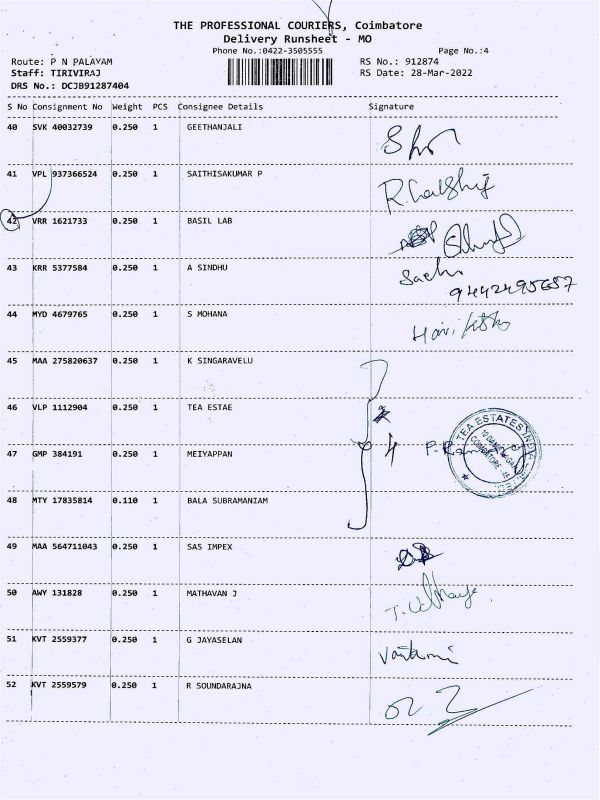 THE PROFESSIONAL COURIERS, Coimbatore
Delivery Runsheet - MO
Phone No.:0422-3505555 Page No.:4
Route: P N PALAYAM RS No.: 912874
Staff: TIRIVIRAJ RS Date: 28-Mar-2022
DRS No.: DCJB91287404
S No Consignment No Weight PCS Consignee Details Signature
40 SVK 40032739 0.250 1 GEETHANJALI
41 VPL 937366524 0.250 1 SAITHISAKUMAR P
42 VRR 1621733 0.250 1 BASIL LAB
43 KRR 5377584 0.250 1 A SINDHU
9442495657
44 MYD 4679765 0.250 1 S MOHANA
45 MAA 275820637 0.250 1 K SINGARAVELU
46 VLP 1112904 0.250 1 TEA ESTAE
TEA ESTATES INDIA
COIMBATORE
47 GMP 384191 0.250 1 MEIYAPPAN 4
48 MTY 17835814 0.110 1 BALA SUBRAMANIAM
49 MAA 564711043 0.250 1 SAS IMPEX
50 AWY 131828 0.250 1 MATHAVAN J
51 KVT 2559377 0.250 1 G JAYASELAN
52 KVT 2559579 0.250 1 R SOUNDARAJNA